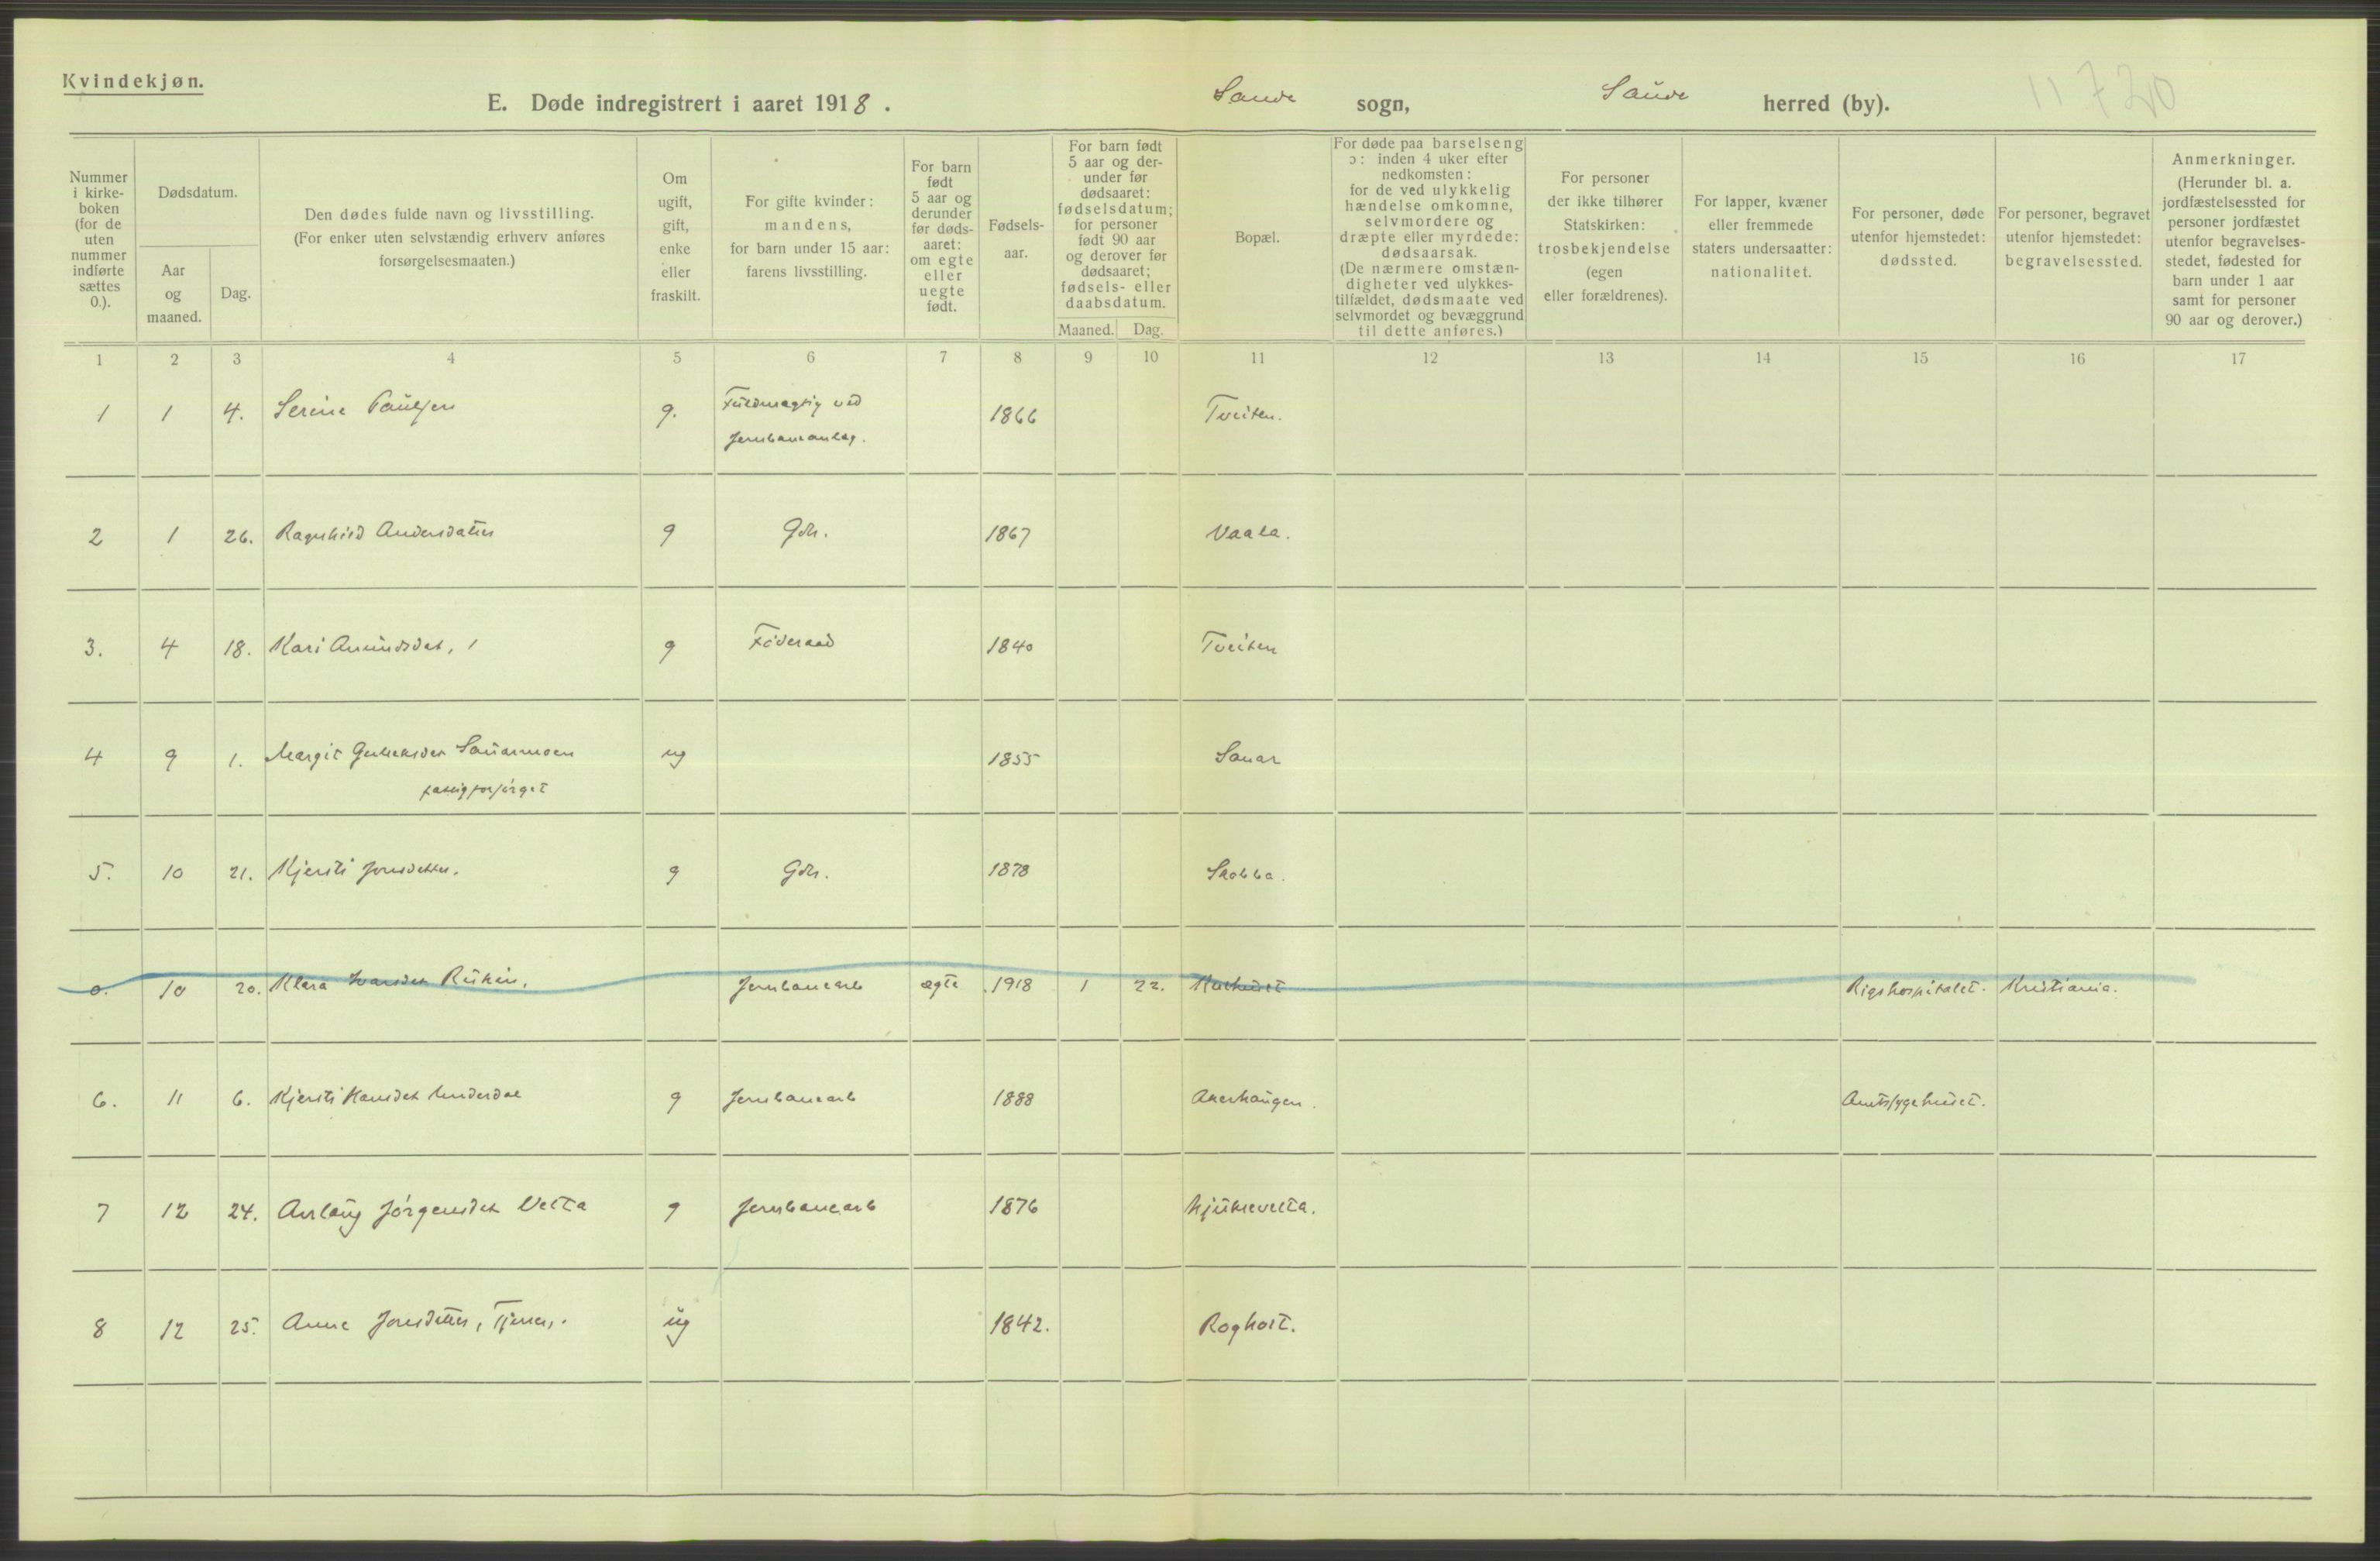 Kvindekjøn.
E. Døde indregistrert i aaret 1918. Saude sogn, Saude herred (by).
11720
Nummer i kirkeboken (for de uten nummer indførte sættes 0.).
Dødsdatum.
Aar og maaned.
Dag.
Den dødes fulde navn og livsstilling.
(For enker uten selvstændig erhverv anføres
forsørgelsesmaaten.)
Om
ugift,
gift,
enke
eller
fraskilt.
For gifte kvinder:
mandens,
for barn under 15 aar:
farens livsstilling.
For barn
født
5 aar og
derunder
før døds-
aaret:
om egte
eller
uegte
født.
Fødsels-
aar.
For barn født
5 aar og der-
under før
dødsaaret:
fødselsdatum;
for personer
født 90 aar
og derover før
dødsaaret;
fødsels- eller
daabsdatum.
Maaned. Dag.
Bopæl.
For døde paa barselseng
ɔ: inden 4 uker efter
nedkomsten:
for de ved ulykkelig
hændelse omkomne,
selvmordere og
dræpte eller myrdede:
dødsaarsak.
(De nærmere omstæn-
digheter ved ulykkes-
tilfældet, dødsmaate ved
selvmordet og bevæggrund
til dette anføres.)
For personer
der ikke tilhører
Statskirken:
trosbekjendelse
(egen
eller forældrenes).
For lapper, kvæner
eller fremmede
staters undersaatter:
nationalitet.
For personer, døde
utenfor hjemstedet:
dødssted.
For personer, begravet
utenfor hjemstedet:
begravelsessted.
Anmerkninger.
(Herunder bl. a.
jordfæstelsessted for
personer jordfæstet
utenfor begravelses-
stedet, fødested for
barn under 1 aar
samt for personer
90 aar og derover.)
1 2 3 4 5 6 7 8 9 10 11 12 13 14 15 16 17
1 1 4. Serine Paulsen g. Fuldmægtig ved 1866 Tveiten.
Jernbaneanlæg.
2 1 26. Ragnhild Andersdatter g Gdr. 1867 Vaala.
3. 4 18. Kari Amundsdat, g Føderaad 1840 Tveiten
4 9 1. Margit Sauarmoen ug 1855 Sauar
fattigforsørget
5. 10 21. Kjersti Jonsdatter. g Gdr. 1878 Skobba.
0. 10 20. Klara Ivarsdat Rukin, Jernbanearb ægte 1918 1 22. Rigshospitalet. Kristiania.
6. 11 6. Kjersti Hansdat Underdal g Jernbanearb 1888 Akerhaugen. Amtssygehuset.
7 12 24. Aslaug Jørgensdat Vetta g Jernbanearb 1876 Hjuksevelta.
8 12 25. Anne Jonsdatter, Tjener,. ug 1842. Rogholt.